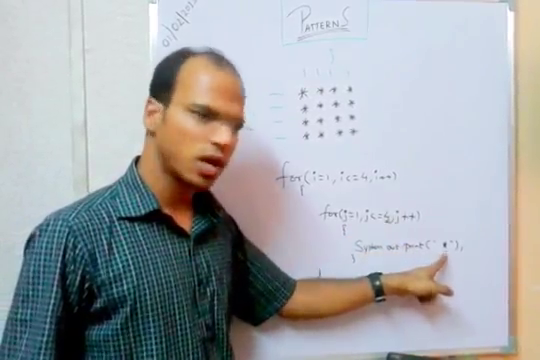 01/02/20
PATTERNS
j
* * * *
* * * *
* * * *
* * * *
for(i=1, i<=4, i++)
{
for(j=1, j<=4, j++)
{
System.out.print("*"),
}